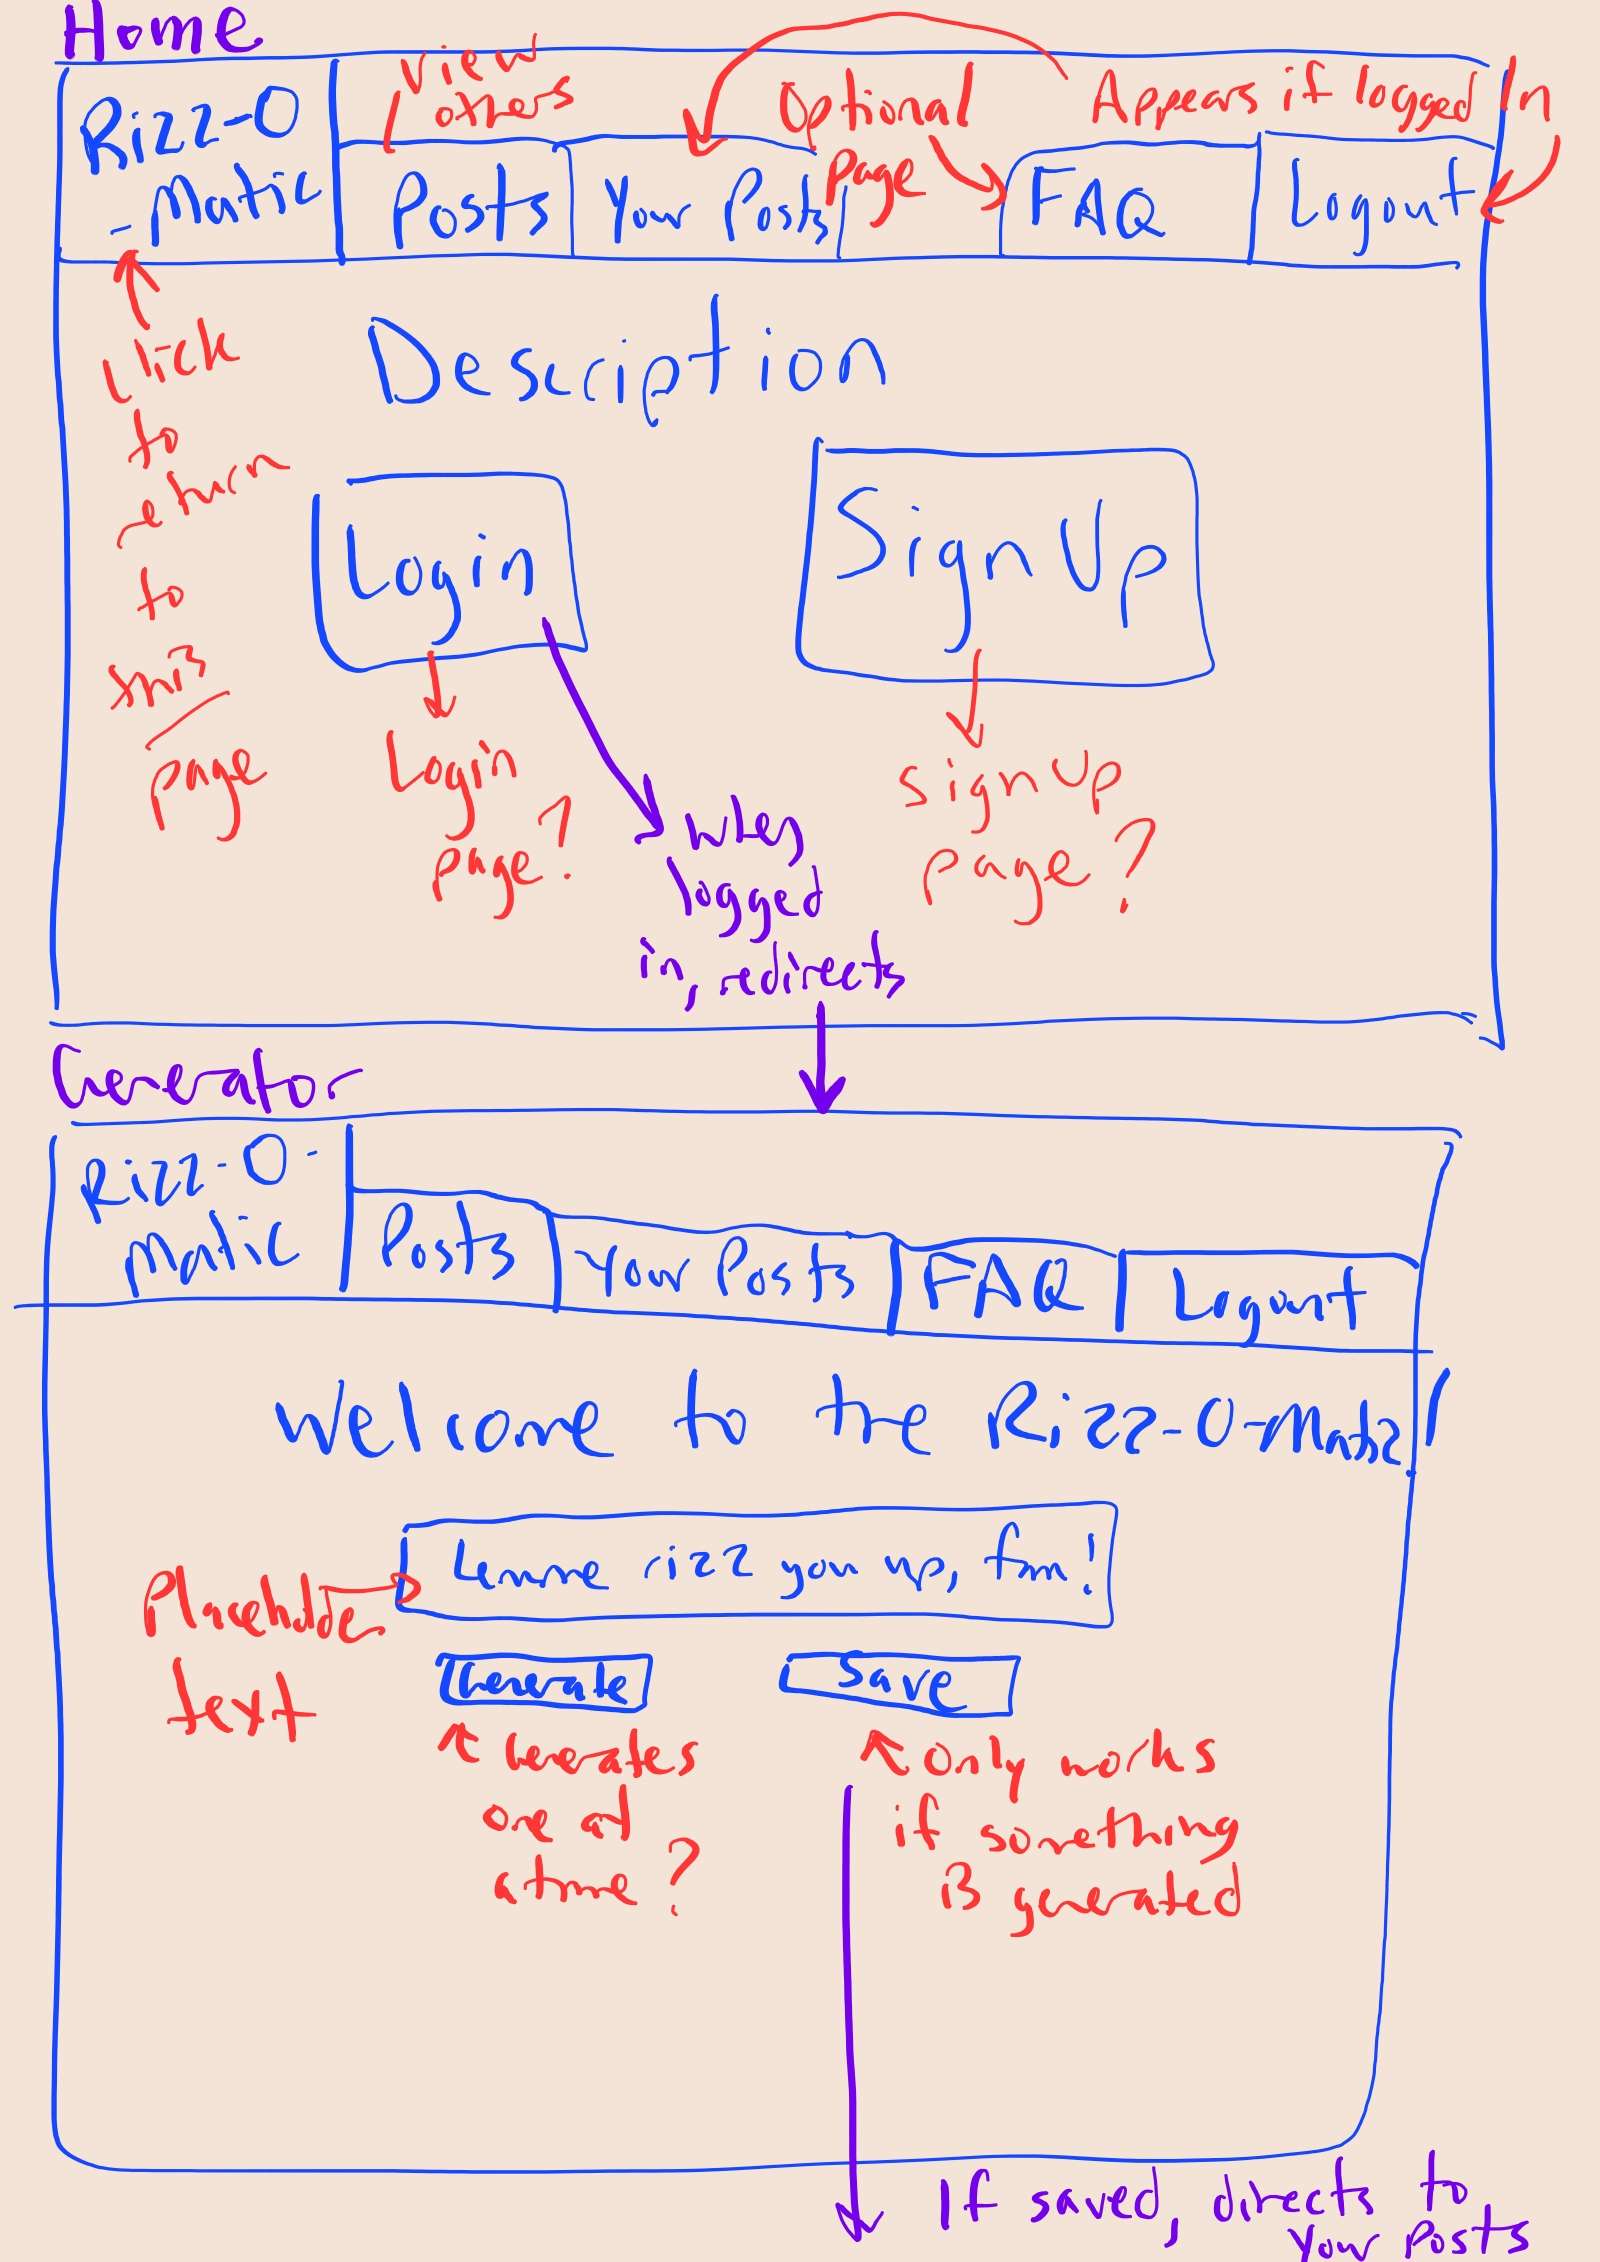 Home
View
others
Optional
page
Appears if logged In
Rizz-O
-Matic
Posts
Your Posts
FAQ
Logout
Click
to
return
to
this
page
Description
Login
Sign Up
Login
page?
signUp
page?
when
logged
in, redirects
Generator
Rizz-O-
Matic
Posts
Your Posts
FAQ
Logout
Welcome to the Rizz-O-Matic!
Lemme rizz you up, fam!
Placeholder
text
Generate
Save
Generates
one at
a time?
Only works
if something
is generated
If saved, directs to
Your Posts